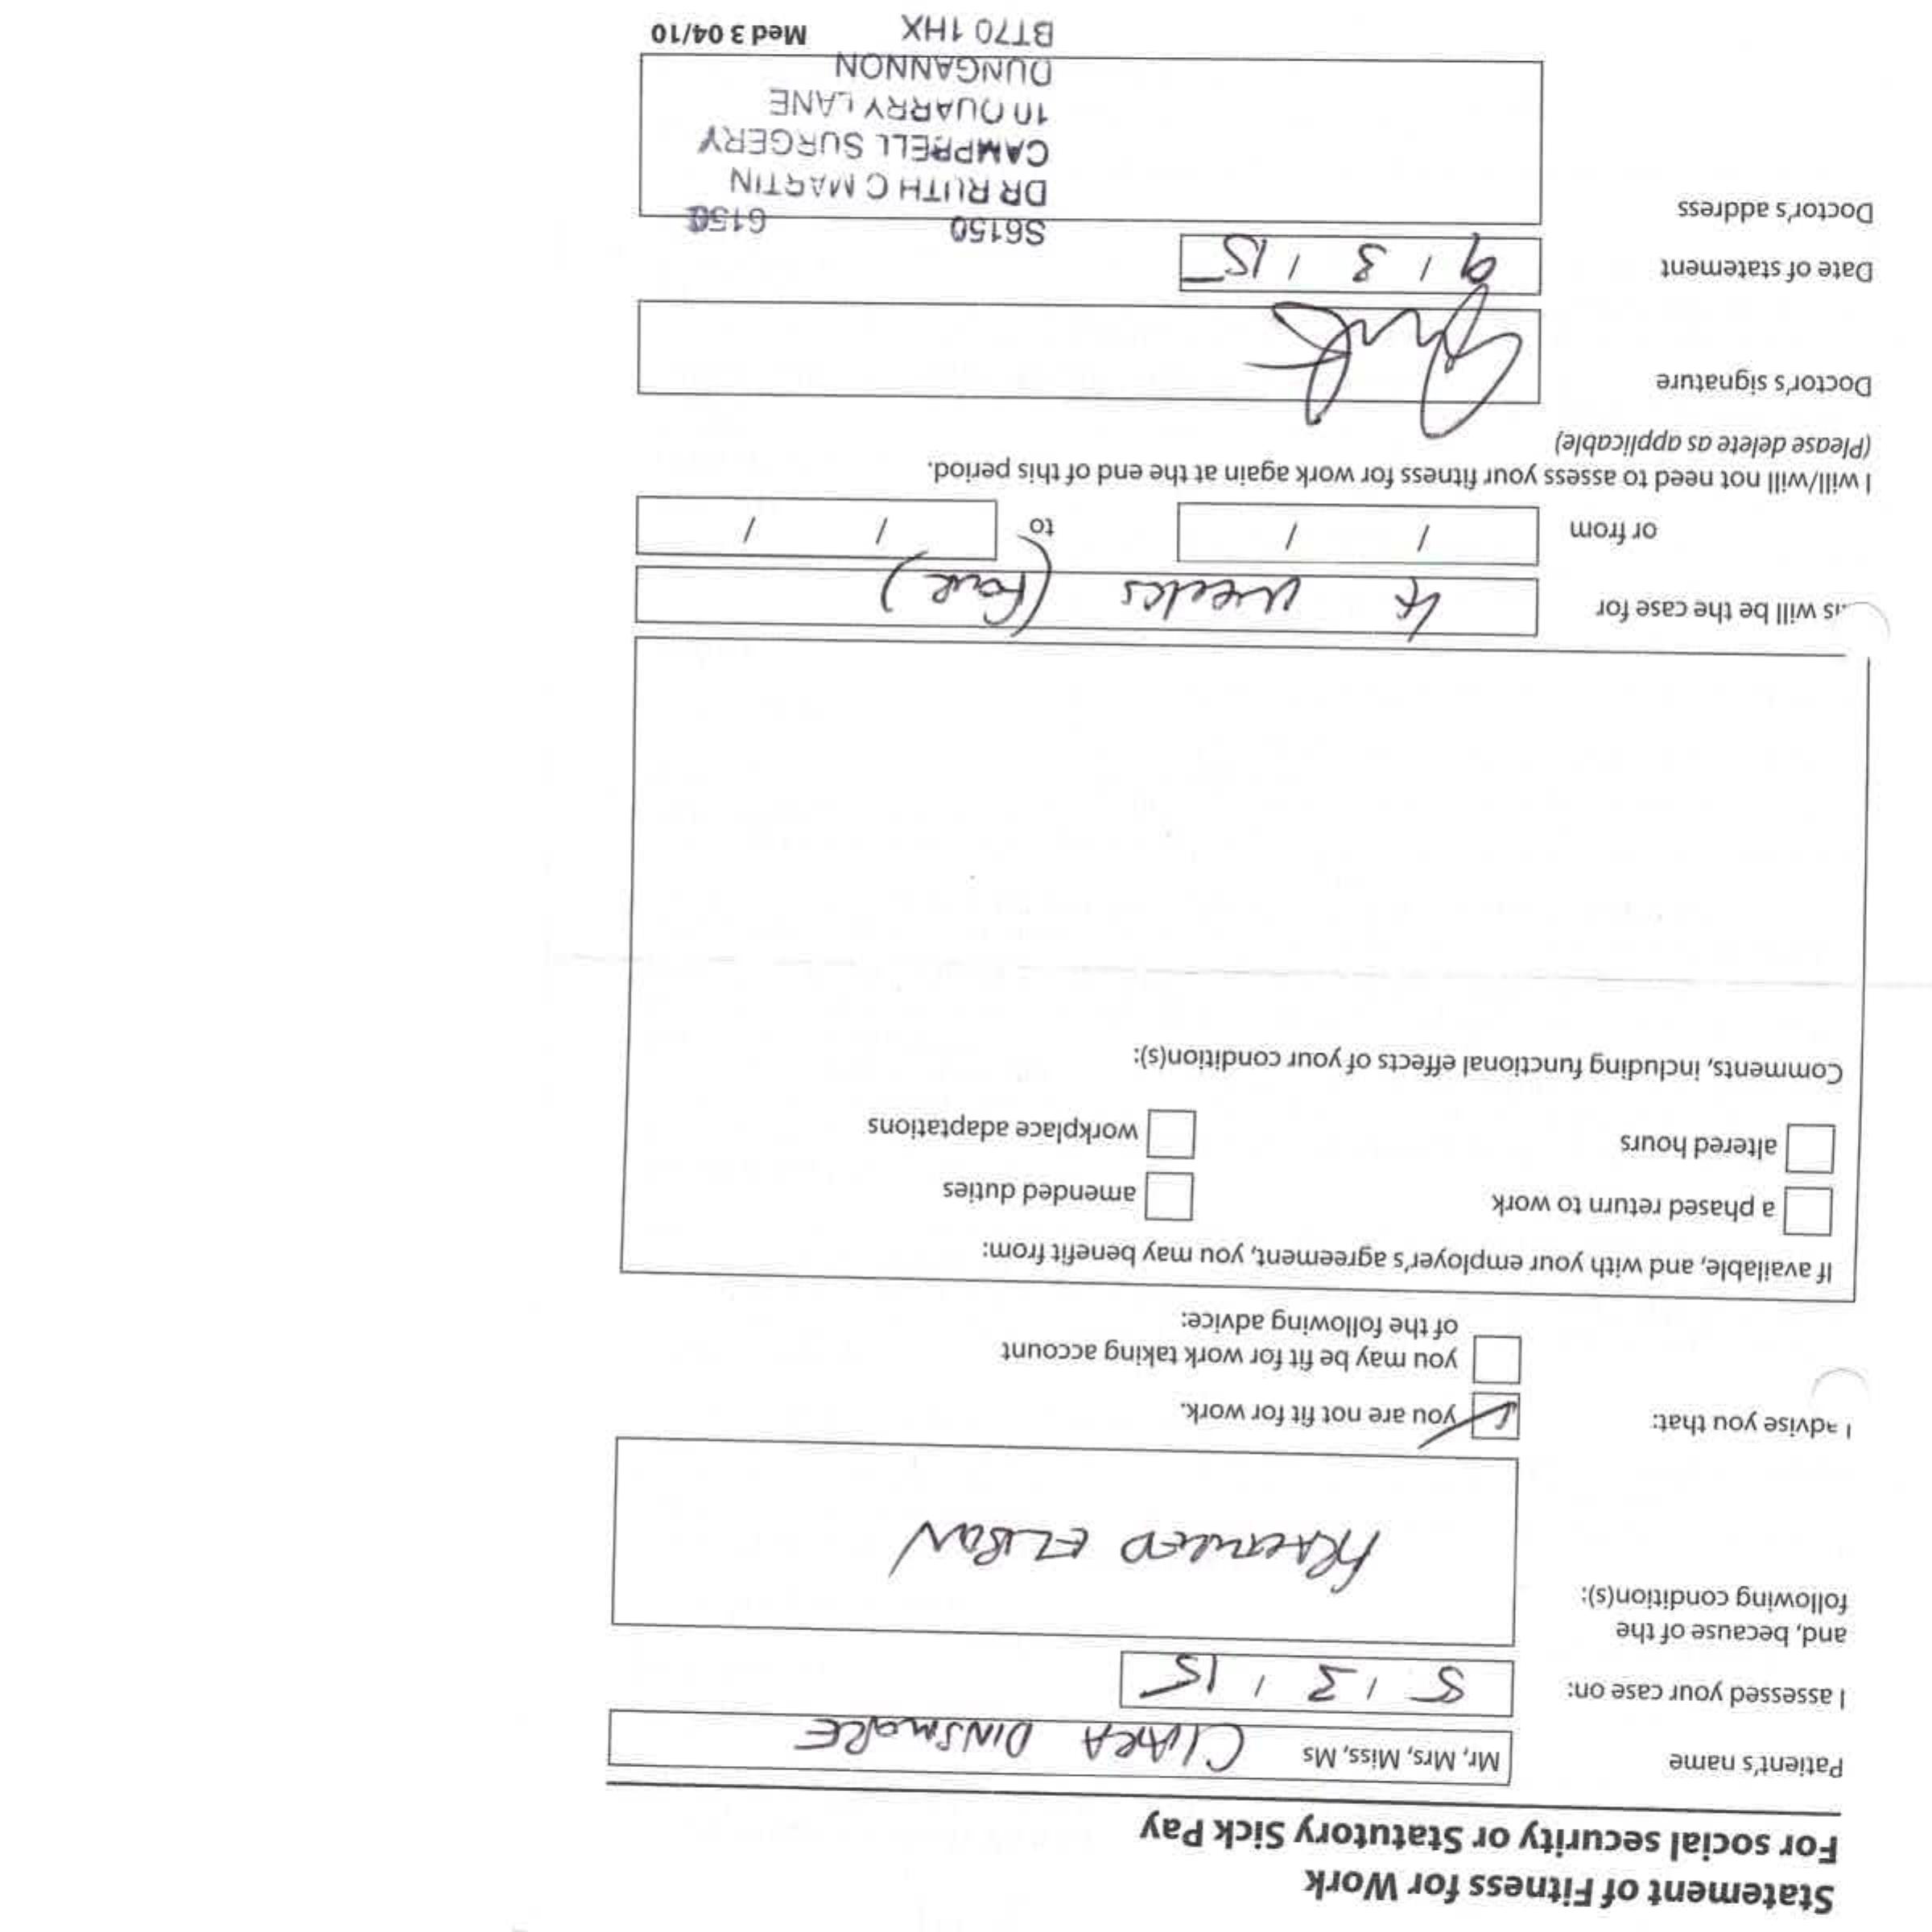 Statement of Fitness for Work
For social security or Statutory Sick Pay
Patient's name Mr, Mrs, Miss, Ms CIARA DINSMORE
I assessed your case on: 5 / 3 / 15
and, because of the
following condition(s):
FRACTURED ELBOW
I advise you that: you are not fit for work.
you may be fit for work taking account
of the following advice:
If available, and with your employer's agreement, you may benefit from:
a phased return to work amended duties
altered hours workplace adaptations
Comments, including functional effects of your condition(s):
is will be the case for 4 weeks (Four)
or from / / to / /
I will/will not need to assess your fitness for work again at the end of this period.
(Please delete as applicable)
Doctor's signature
Date of statement 9 / 3 / 15
Doctor's address
S6150 6150
DR RUTH C MARTIN
CAMPBELL SURGERY
10 QUARRY LANE
DUNGANNON
BT70 1HX
Med 3 04/10